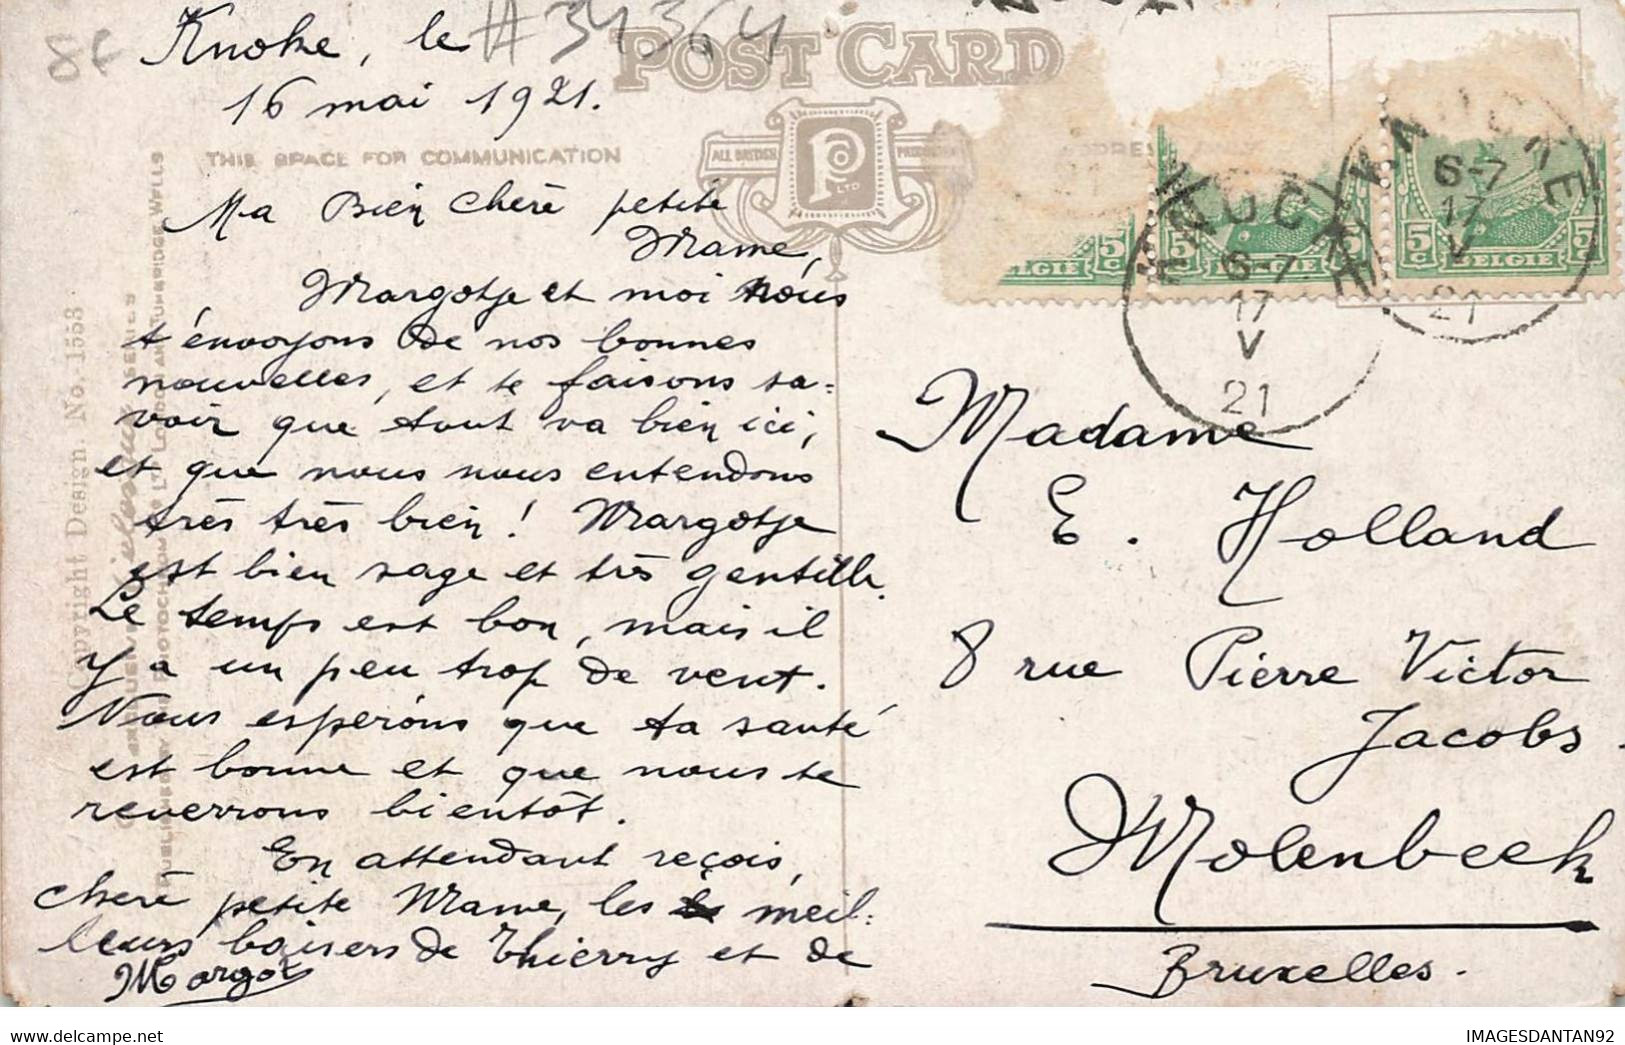 8€
Knoke, le
#34364
16 mai 1921.
POST CARD
THIS SPACE FOR COMMUNICATION
ALL BRITISH
P
LTD
Ma Bien chère petite
Mame,
Margotje et moi nous
t'envoyons de nos bonnes
nouvelles, et te faisons sa=
voir que tout va bien ici,
et que nous nous entendons
très très bien! Margotje
est bien sage et très gentille.
Le temps est bon, mais il
y a un peu trop de vent.
Nous espérons que ta santé
est bonne et que nous te
reverrons bientôt.
En attendant reçois,
chère petite Mame, les meil=
leurs baisers de Thierry et de
Margot
Copyright Design. No. 1553
5c BELGIE 5c
KNOCKE
6-7
17
V
21
KNOCKE
6-7
17
V
21
Madame
E. Holland
8 rue Pierre Victor
Jacobs.
Molenbeek
Bruxelles.
delcampe.net
IMAGESDANTAN92